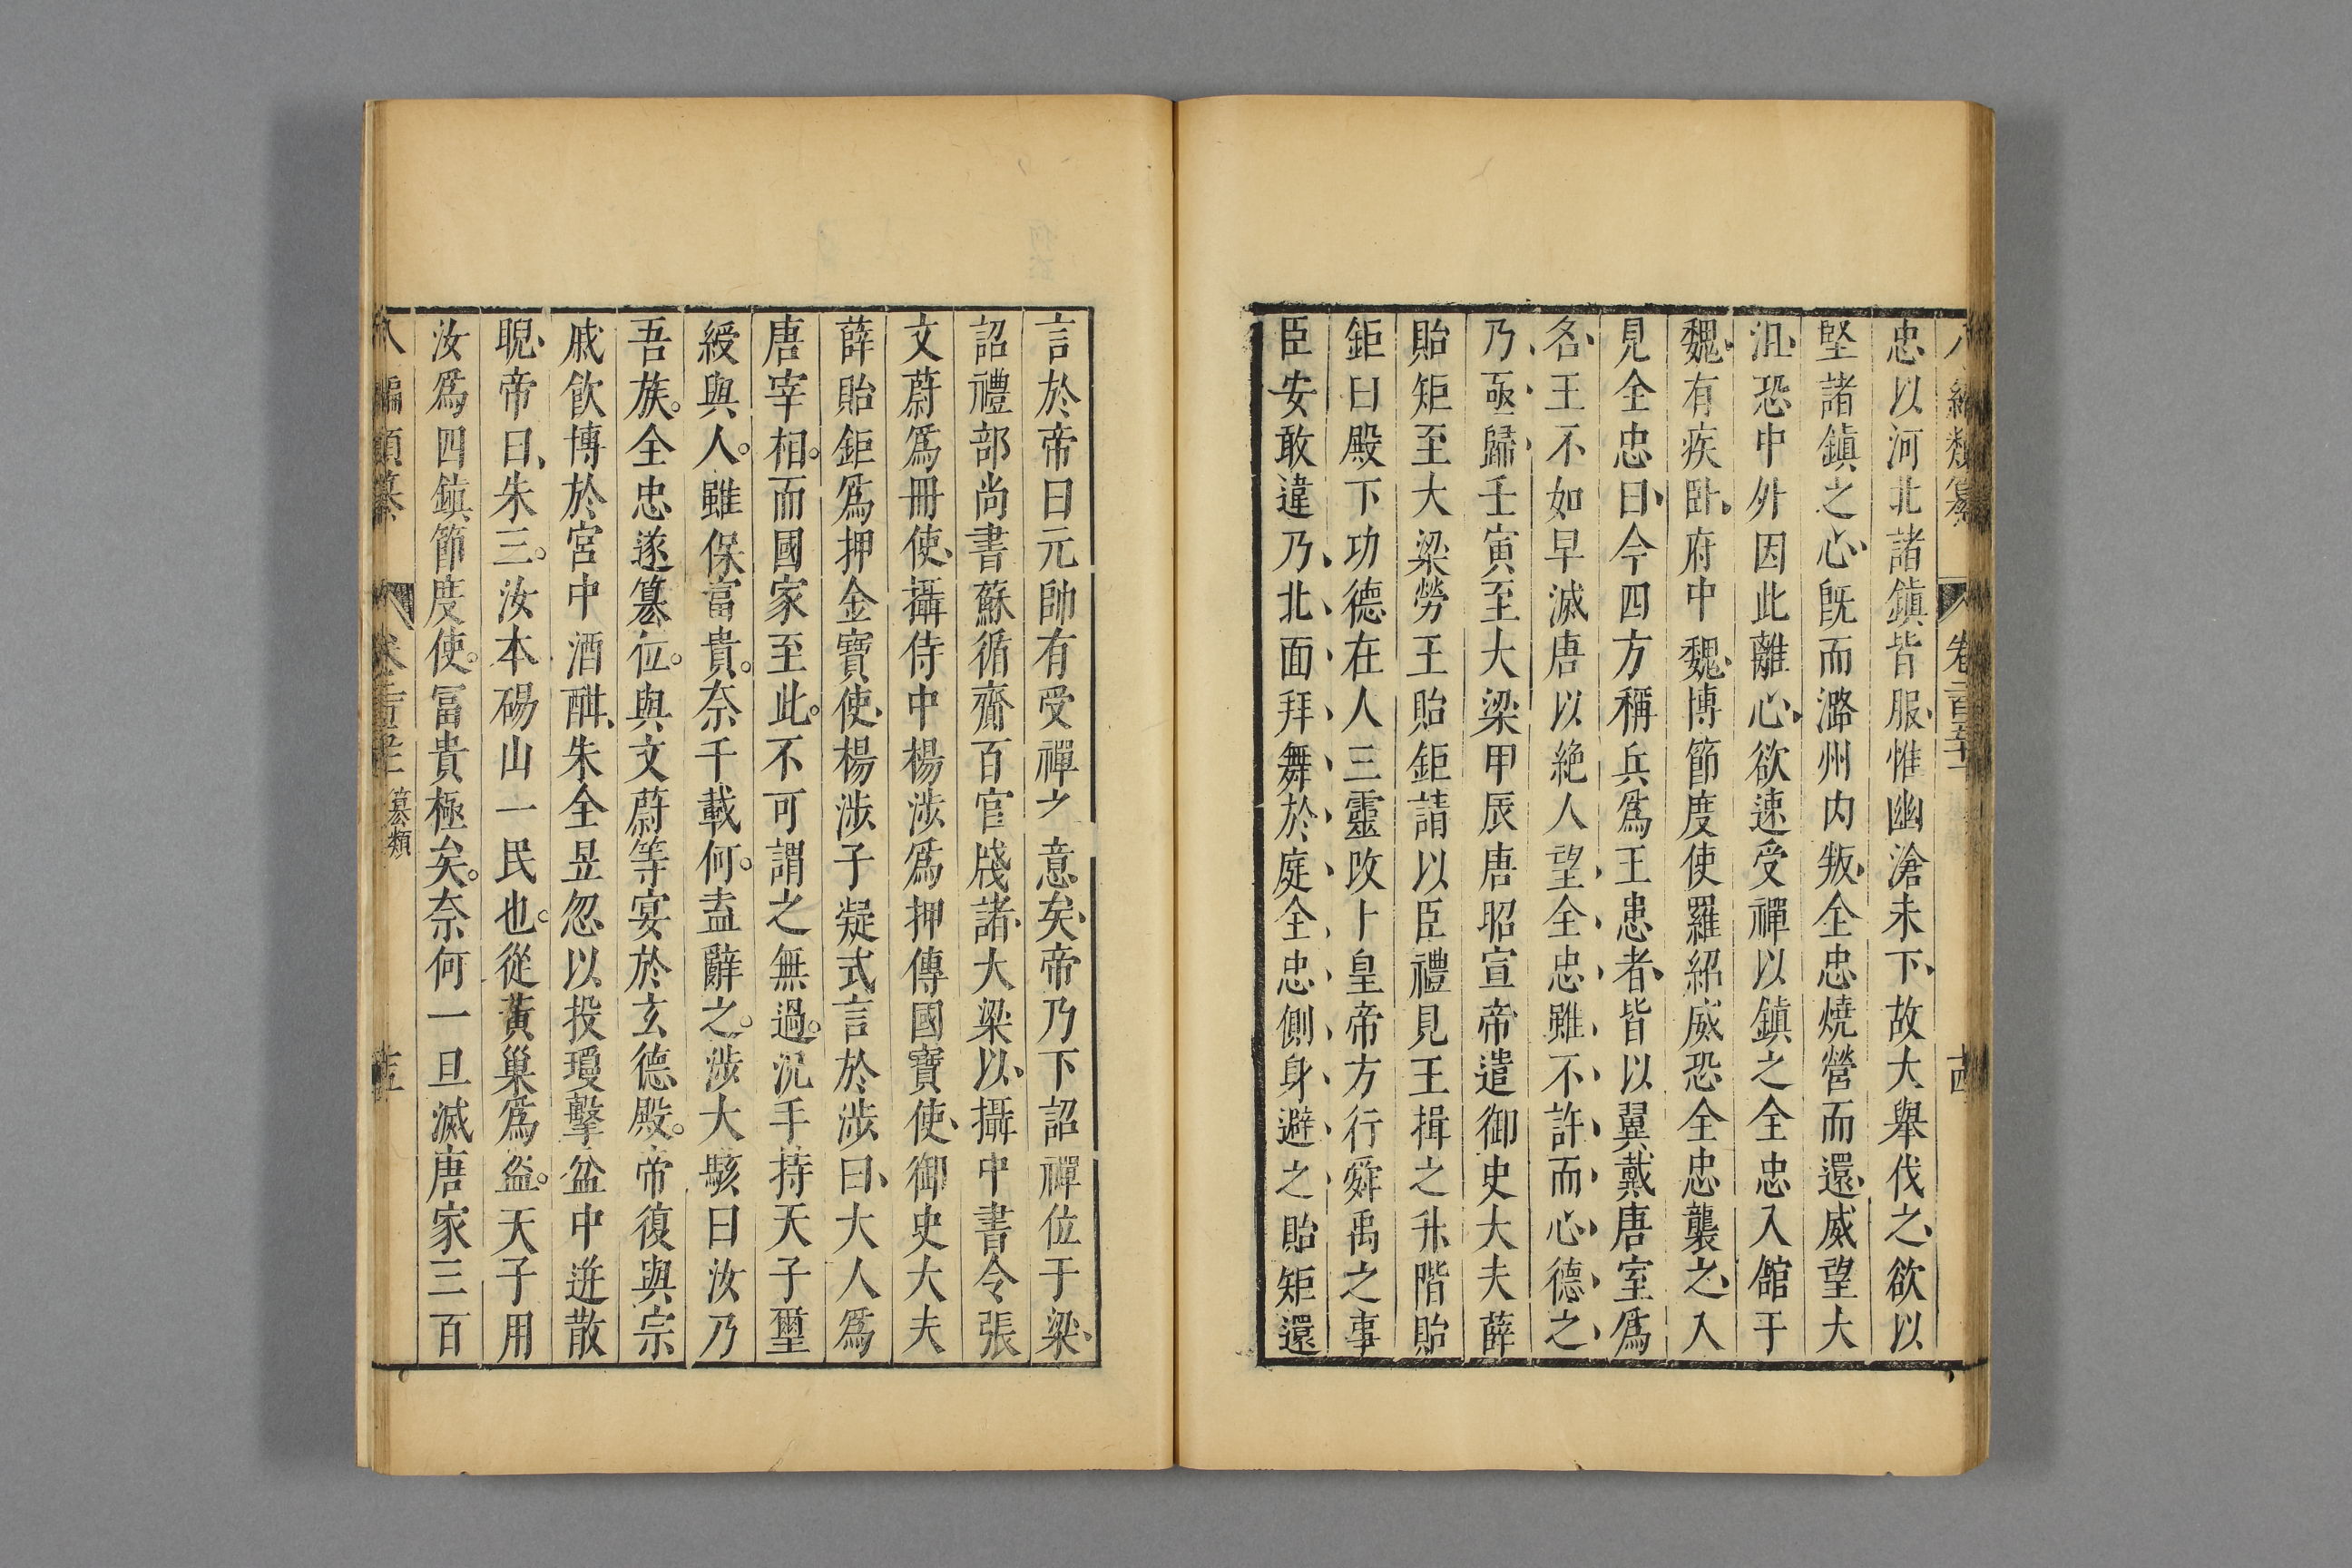 忠以河北諸鎮皆服惟幽滄未下故大舉伐之欲以
堅諸鎮之心既而潞州内叛全忠燒營而還威望大
沮恐中外因此離心欲速受禪以鎮之全忠入館于
魏有疾臥府中魏博節度使羅紹威恐全忠襲之入
見全忠曰今四方稱兵爲王患者皆以翼戴唐室爲
名王不如早滅唐以絶人望全忠雖不許而心德之
乃亟歸壬寅至大梁甲辰唐昭宣帝遣御史大夫薛
貽矩至大梁勞王貽鉅請以臣禮見王揖之升階貽
鉅曰殿下功德在人三靈改卜皇帝方行舜禹之事
臣安敢違乃北面拜舞於庭全忠側身避之貽矩還
言於帝曰元帥有受禪之意矣帝乃下詔禪位于梁
詔禮部尚書蘇循齎百官牋諸大梁以攝中書令張
文蔚爲冊使攝侍中楊涉爲押傳國寶使御史大夫
薛貽鉅爲押金寶使楊涉子凝式言於涉曰大人爲
唐宰相而國家至此不可謂之無過況手持天子璽
綬與人雖保富貴奈千載何盍辭之涉大駭曰汝乃
吾族全忠遂簒位與文蔚等宴於玄德殿帝復與宗
戚飮博於宮中酒酣朱全昱忽以投瓊擊盆中迸散
睨帝曰朱三汝本碭山一民也從黃巢爲盜天子用
汝爲四鎮節度使冨貴極矣奈何一旦滅唐家三百
八編類纂 簒類